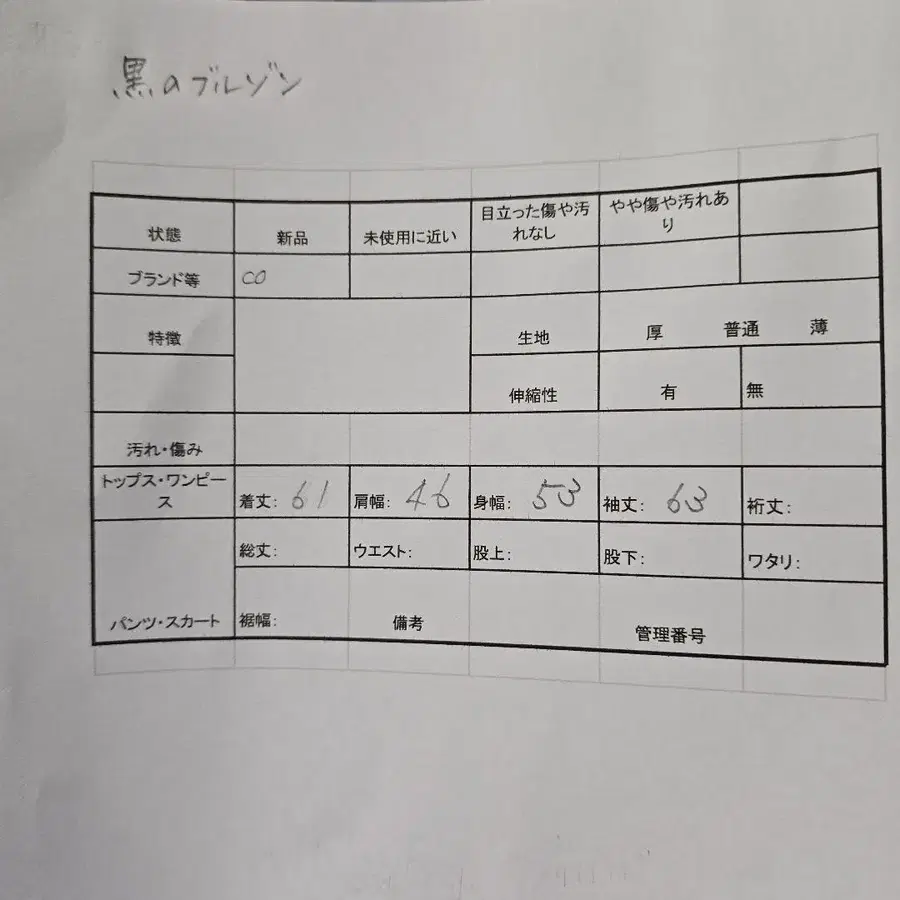 黒のブルゾン
状態 新品 未使用に近い 目立った傷や汚 やや傷や汚れあ
れなし り
ブランド等 CO
特徴 生地 厚 普通 薄
伸縮性 有 無
汚れ・傷み
トップス・ワンピー
ス 着丈: 61 肩幅: 46 身幅: 53 袖丈: 63 裄丈:
総丈: ウエスト: 股上: 股下: ワタリ:
パンツ・スカート 裾幅: 備考 管理番号